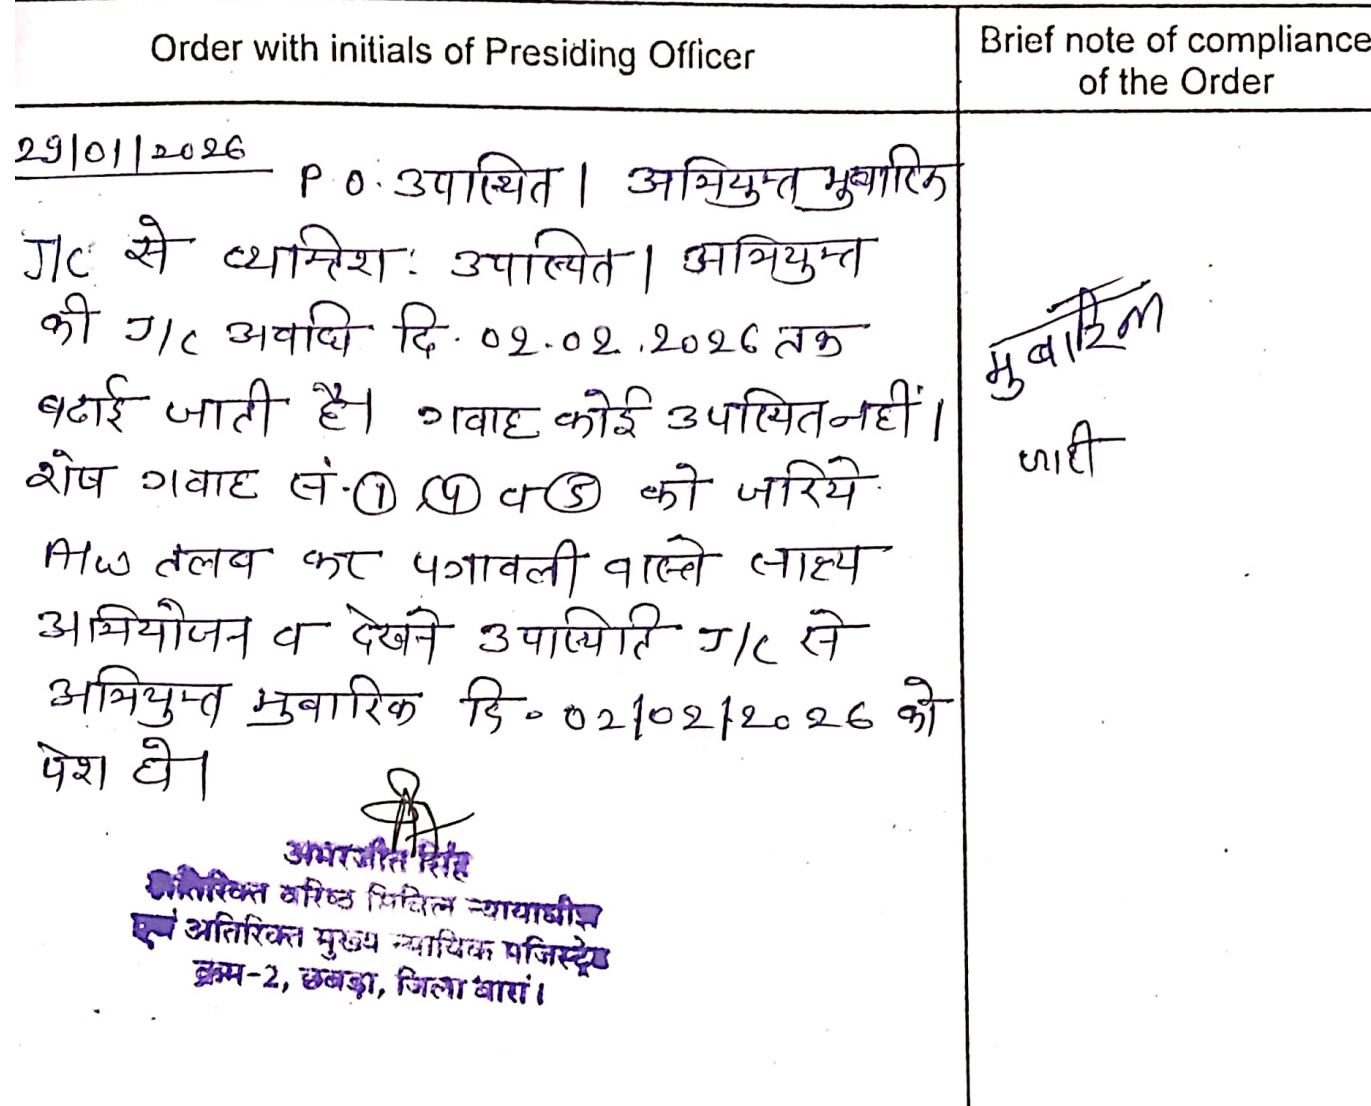 Order with initials of Presiding Officer
Brief note of compliance
of the Order
29/01/2026
P.O. उपस्थित। अभियुक्त मुबारिक
J/C से व्यक्तिशः उपस्थित। अभियुक्त
की J/C अवधि दि. 02.02.2026 तक
बढाई जाती है। गवाह कोई उपस्थित नहीं।
शेष गवाह सं. ① ④ व ⑤ को जरिये
A/w तलब कर पत्रावली वास्ते साक्ष्य
अभियोजन व देखने उपस्थिति J/C से
अभियुक्त मुबारिक दि. 02/02/2026 को
पेश हो।
मुबारिक
अमरजीत सिंह
अतिरिक्त वरिष्ठ सिविल न्यायाधीश
एवं अतिरिक्त मुख्य न्यायिक मजिस्ट्रेट
क्रम-2, छबड़ा, जिला बारां।